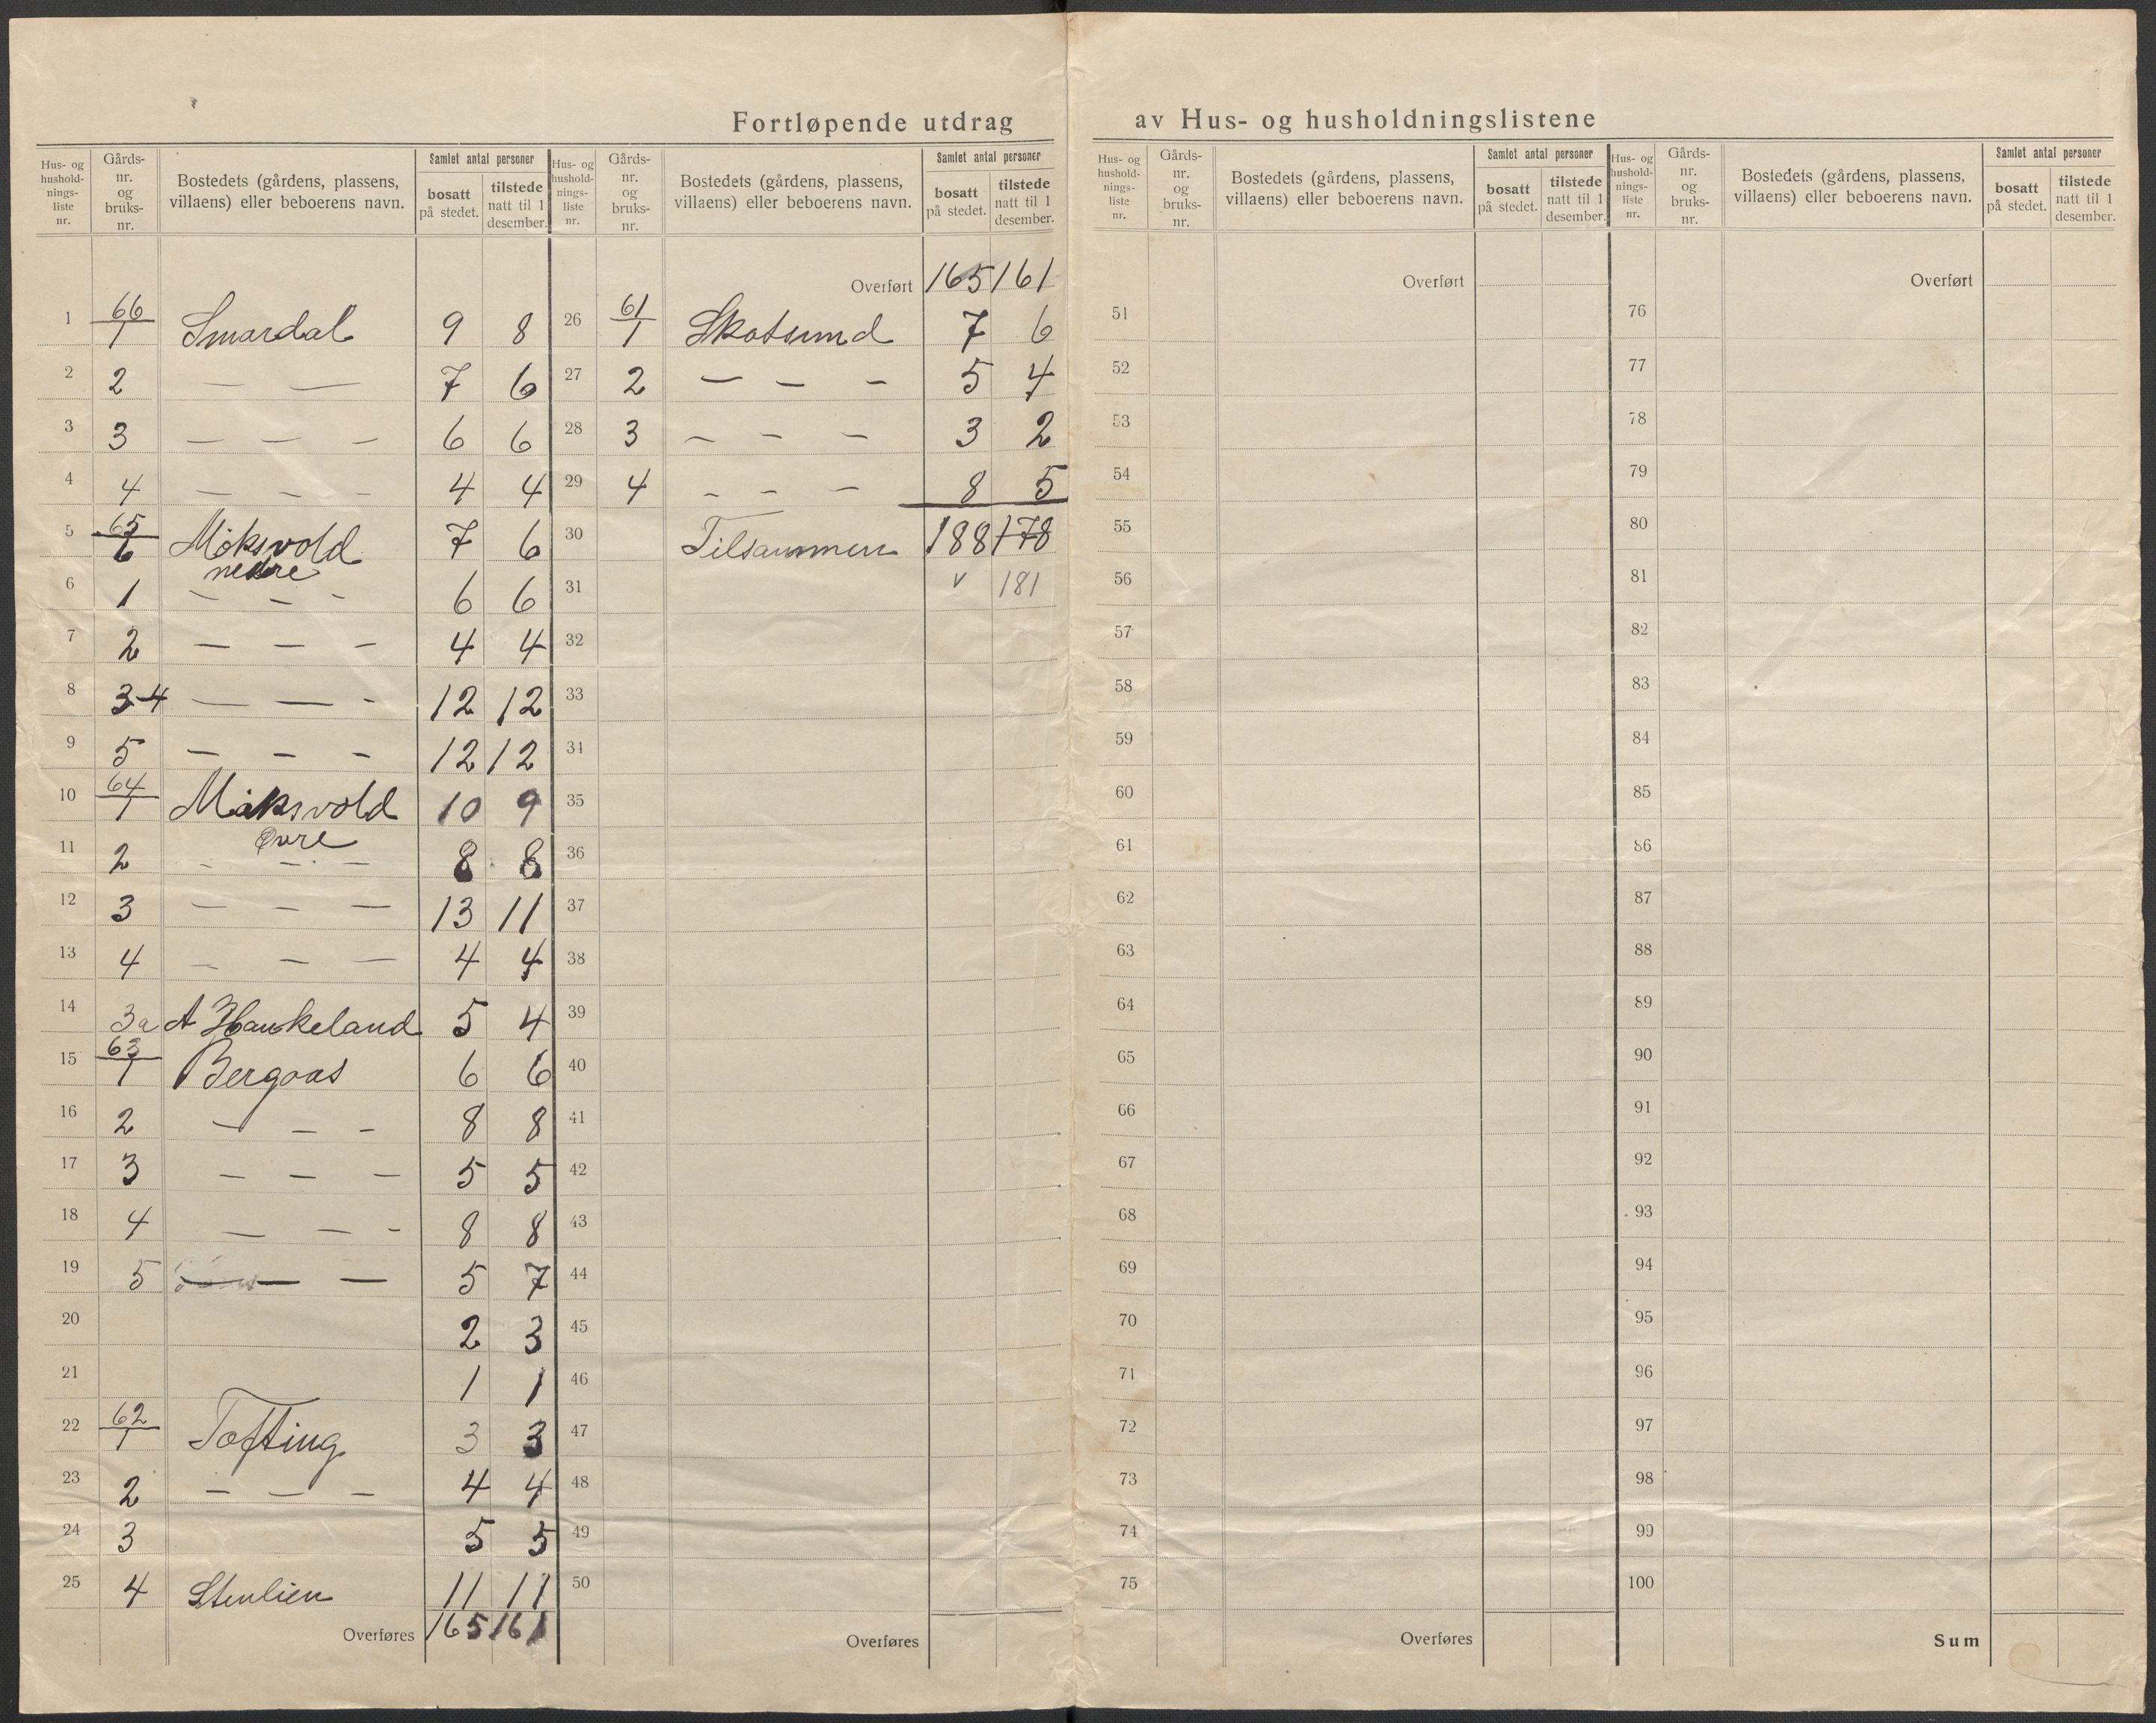 Fortløpende utdrag av Hus- og husholdningslistene
Hus- og hushold-nings-liste nr. Gårds-nr. og bruks-nr. Bostedets (gårdens, plassens, villaens) eller beboerens navn. Samlet antal personer bosatt på stedet. tilstede natt til 1 desember.
1 66/1 Smørdal 9 8
2 2 — — 7 6
3 3 — — - 6 6
4 4 — - - 4 4
5 65/6 Moksvold nedre 7 6
6 1 - - - 6 6
7 2 — — - 4 4
8 3-4 — — - 12 12
9 5 — — - 12 12
10 64/1 Moksvold Øvre 10 9
11 2 - — — 8 8
12 3 — — — 13 11
13 4 — — — 4 4
14 3a A Haukeland 5 4
15 63/1 Bergaas 6 6
16 2 — — - 8 8
17 3 — — — 5 5
18 4 — — - 8 8
19 5 — — 5 7
20 2 3
21 1 1
22 62/1 Tofting 3 3
23 2 — — — 4 4
24 3 5 5
25 4 Stenlien 11 11
Overføres 165 161
Hus- og hushold-nings-liste nr. Gårds-nr. og bruks-nr. Bostedets (gårdens, plassens, villaens) eller beboerens navn. Samlet antal personer bosatt på stedet. tilstede natt til 1 desember.
Overført 165 161
26 61/1 Skotsund 7 6
27 2 — — - 5 4
28 3 — — — 3 2
29 4 - - — 8 5
30 Tilsammen 188 178
31 v 181
32
33
34
35
36
37
38
39
40
41
42
43
44
45
46
47
48
49
50
Overføres
Hus- og hushold-nings-liste nr. Gårds-nr. og bruks-nr. Bostedets (gårdens, plassens, villaens) eller beboerens navn. Samlet antal personer bosatt på stedet. tilstede natt til 1 desember.
Overført
51
52
53
54
55
56
57
58
59
60
61
62
63
64
65
66
67
68
69
70
71
72
73
74
75
Overføres
Hus- og hushold-nings-liste nr. Gårds-nr. og bruks-nr. Bostedets (gårdens, plassens, villaens) eller beboerens navn. Samlet antal personer bosatt på stedet. tilstede natt til 1 desember.
Overført
76
77
78
79
80
81
82
83
84
85
86
87
88
89
90
91
92
93
94
95
96
97
98
99
100
Sum